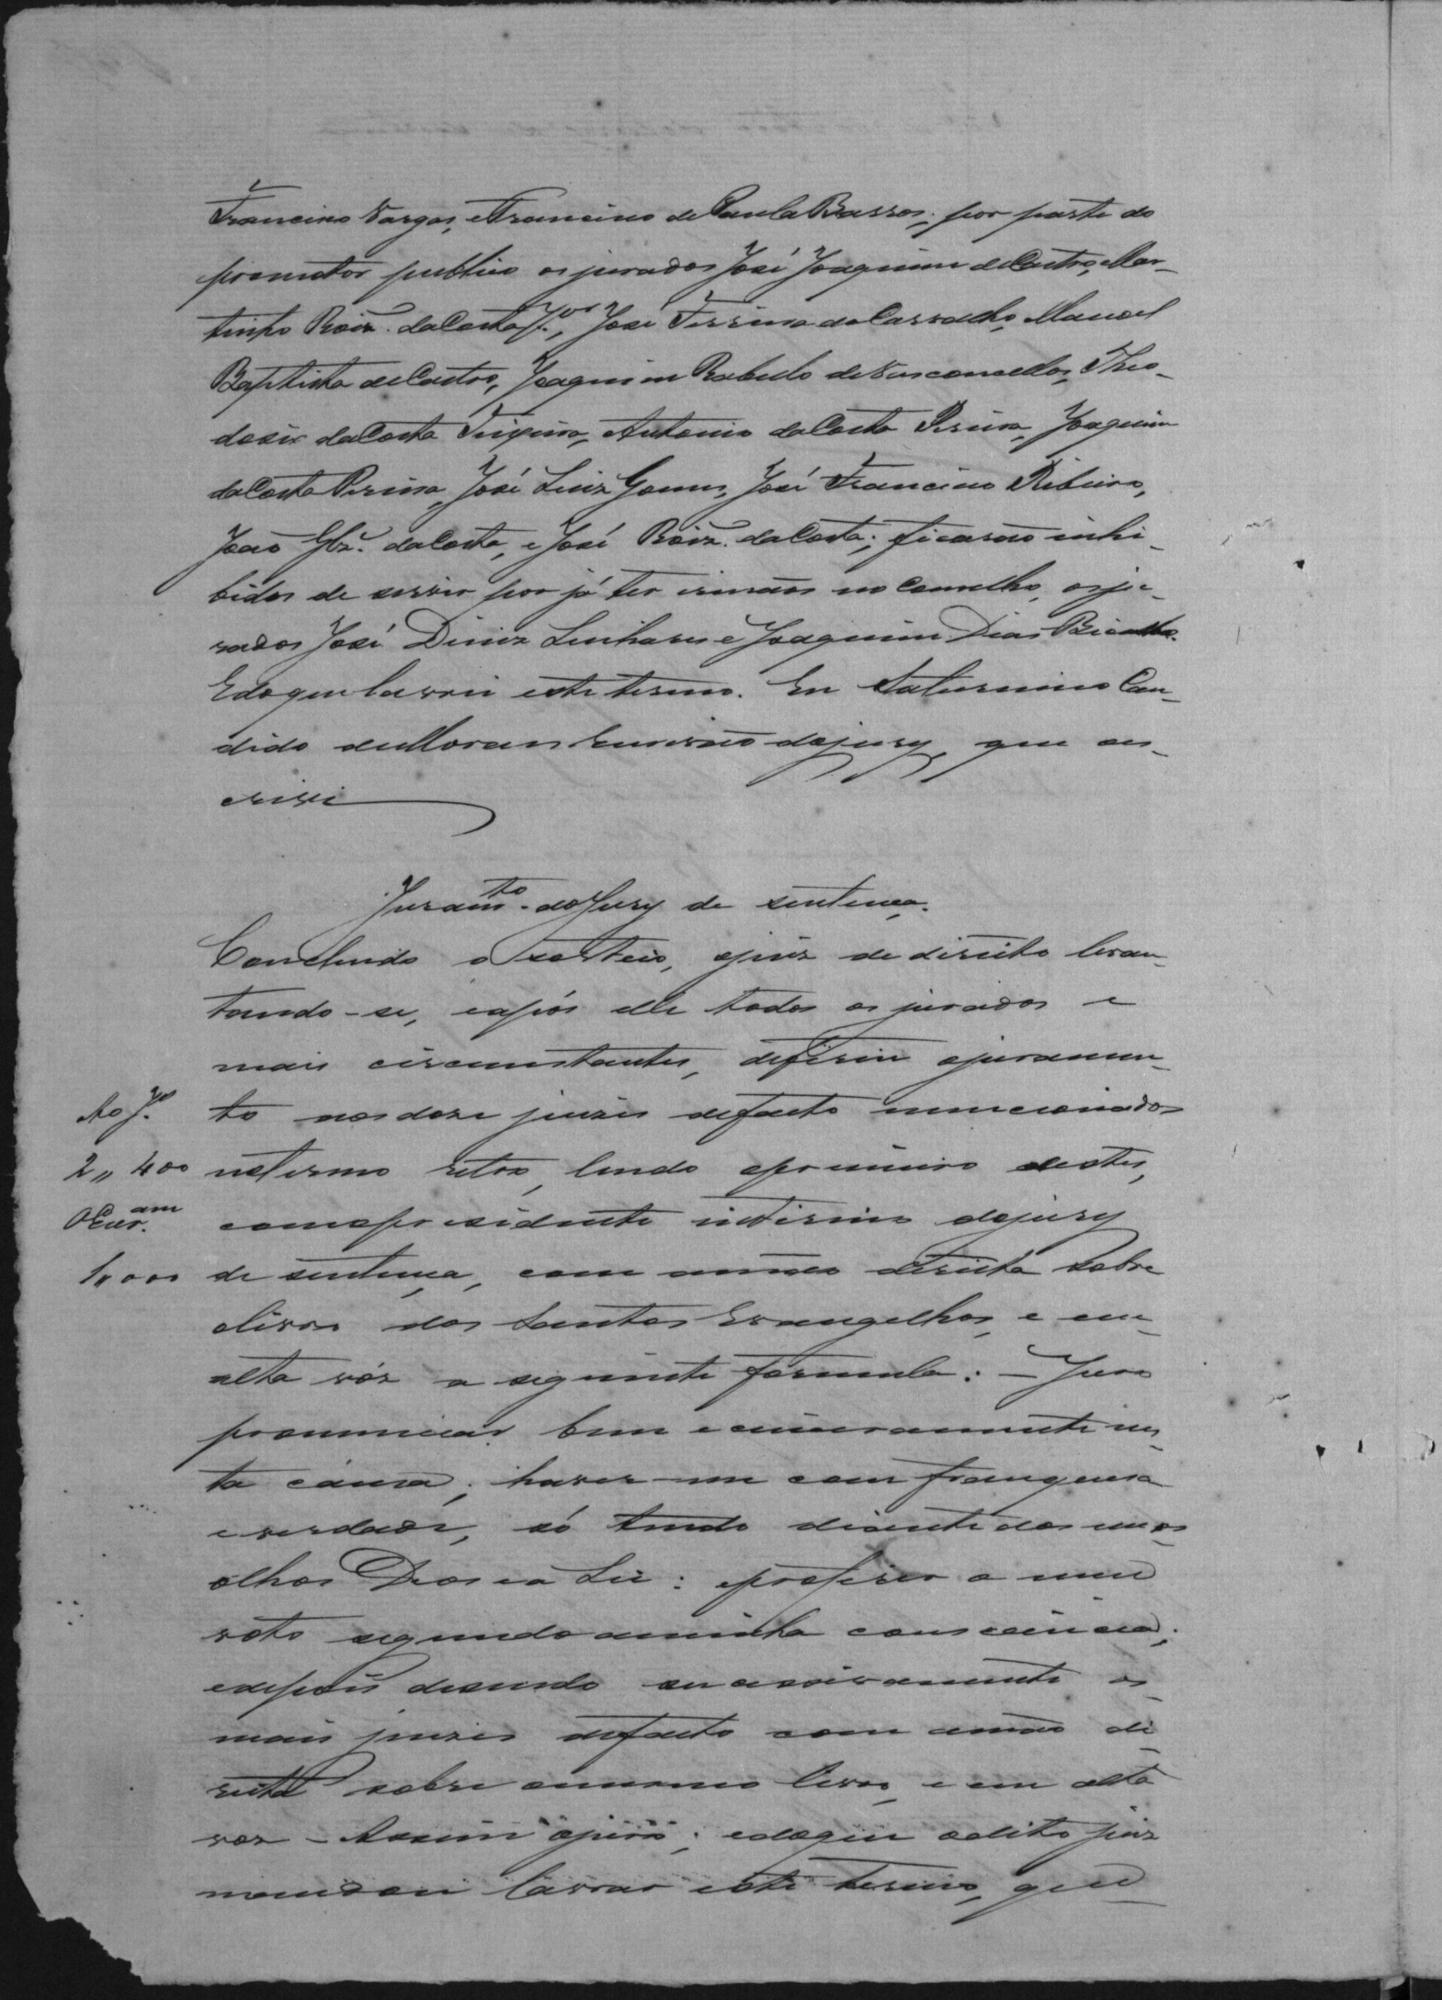 Francisco Vargas, e Francisco de Paula Bassos; por parte do
promotor publico os jurados José Joaquim de Castro, Mar-
tinho Roiz. da Costa Jor., José Ferreira de Carvalho, Manoel
Baptista de Castro, Joaquim Rabello de Vasconcellos, Theo-
dosio da Costa Teixeira, Antonio da Costa Pereira, Joaquim
da Costa Pereira, José Luiz Gomes, José Francisco Ribeiro,
João Glz. da Costa, e José Roiz. da Costa; ficarão inhi-
bidos de servir por já ter irmãos no conselho, os ju-
rados José Diniz Linhares e Joaquim Dias Bicalho.
E do que lavrei este termo. Eu Saturnino Can-
dido de Moraes Escrivão do jury, que es-
crivi
Juramto. do Jury de sentença.
Concluido o sorteio, o juiz de direito levan-
tando-se, e após elle todos os jurados e
mais circumstantes, deferiu o juramen-
Ao Jo. to aos doze juizes de facto mencionados
2,,400 no termo retro, lendo o primeiro destes,
O Escr.am como presidente interino do jury
1,,000 de sentença, com a mão direita sobre
o livro dos Santos Evangelhos, e em
alta vóz a seguinte formula: — Juro
pronunciar bem e sinceramente nes-
ta causa; haver-me com franqueza
e verdade, só tendo diante dos meus
olhos Deos e a Lei: e proferir o meu
voto segundo a minha consciencia;
e depois dizendo successivamente os
mais juizes de facto com a mão di-
reita sobre o mesmo livro, e em alta
voz — Assim o juro; e do que o dito juiz
mandou lavrar este termo, que